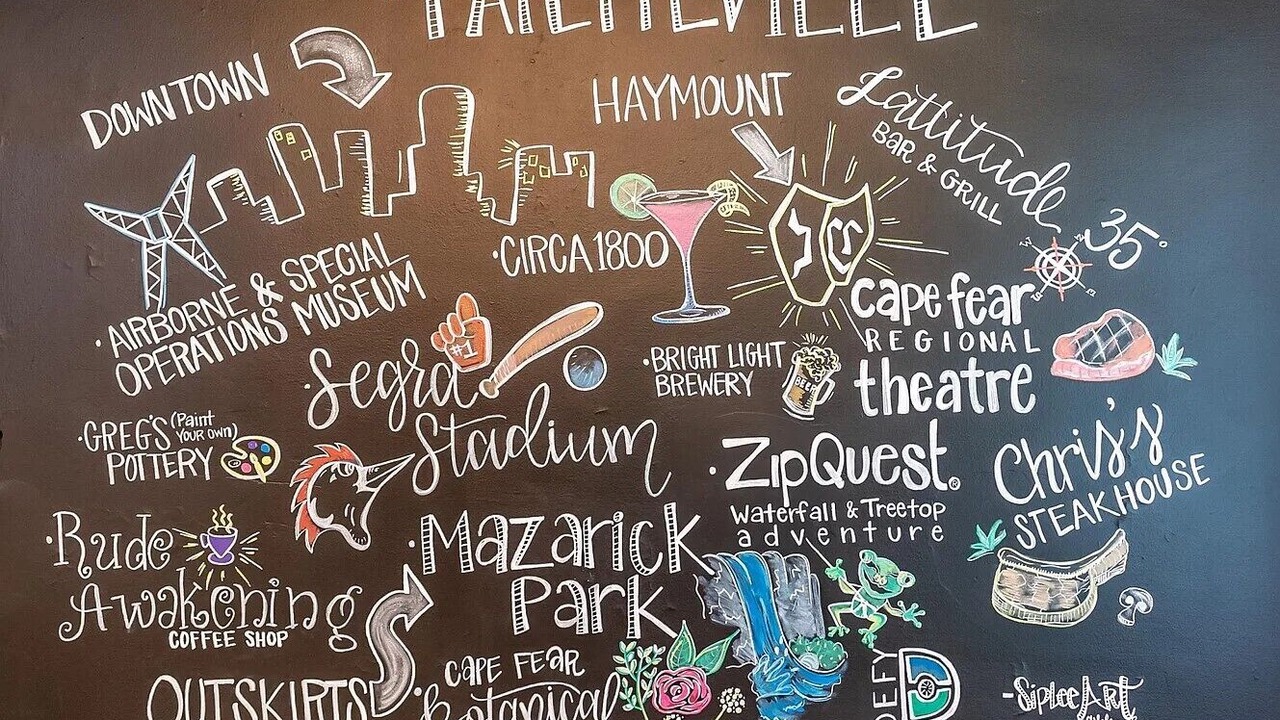 FAYETTEVILLE
DOWNTOWN
HAYMOUNT
Lattitude
BAR & GRILL
35°
·CIRCA 1800
·AIRBORNE & SPECIAL
OPERATIONS MUSEUM
#1
·Segra
Stadium
·BRIGHT LIGHT
BREWERY
BEER
cape fear
REGIONAL
theatre
·GREG'S (Paint
YOUR OWN)
POTTERY
·ZipQuest®
Waterfall & Treetop
adventure
Chris's
STEAKHOUSE
·Rude
Awakening
COFFEE SHOP
·Mazarick
Park
OUTSKIRTS
·CAPE FEAR
Botanical
DEFY
D